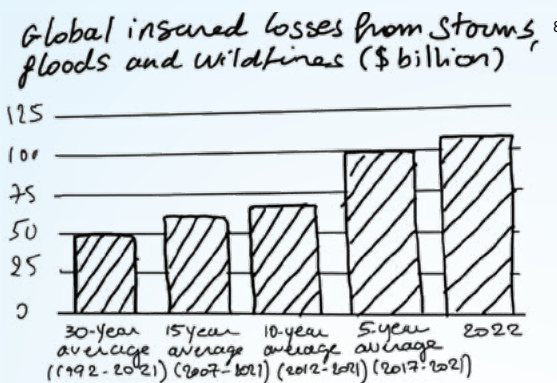 Global insured losses from storms,
floods and wildfires ($ billion)
125
100
75
50
25
0
30-year average (1992-2021)
15 year average (2007-2021)
10-year average (2012-2021)
5-year average (2017-2021)
2022